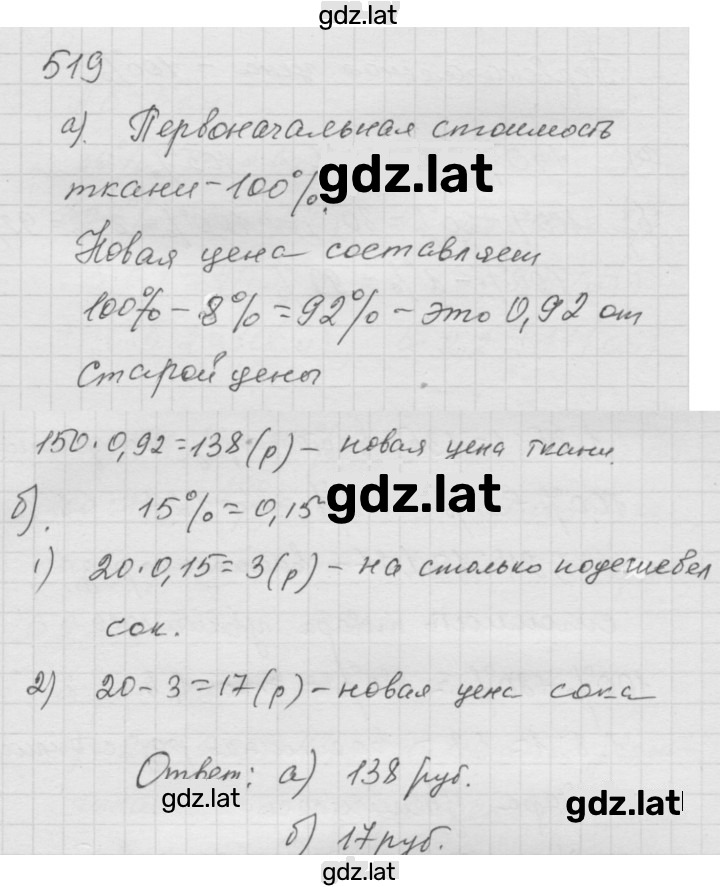 gdz.lat
519
а). Первоначальная стоимость
ткани - 100%.
gdz.lat
Новая цена составляет
100% - 8% = 92% - это 0,92 от
старой цены
150·0,92=138(р) - новая цена ткани.
б). 15% = 0,15
gdz.lat
1) 20·0,15=3(р) - на столько подешевел
сок.
2) 20-3=17(р) - новая цена сока
Ответ: а) 138 руб.
gdz.lat
gdz.lat
б) 17 руб.
gdz.lat